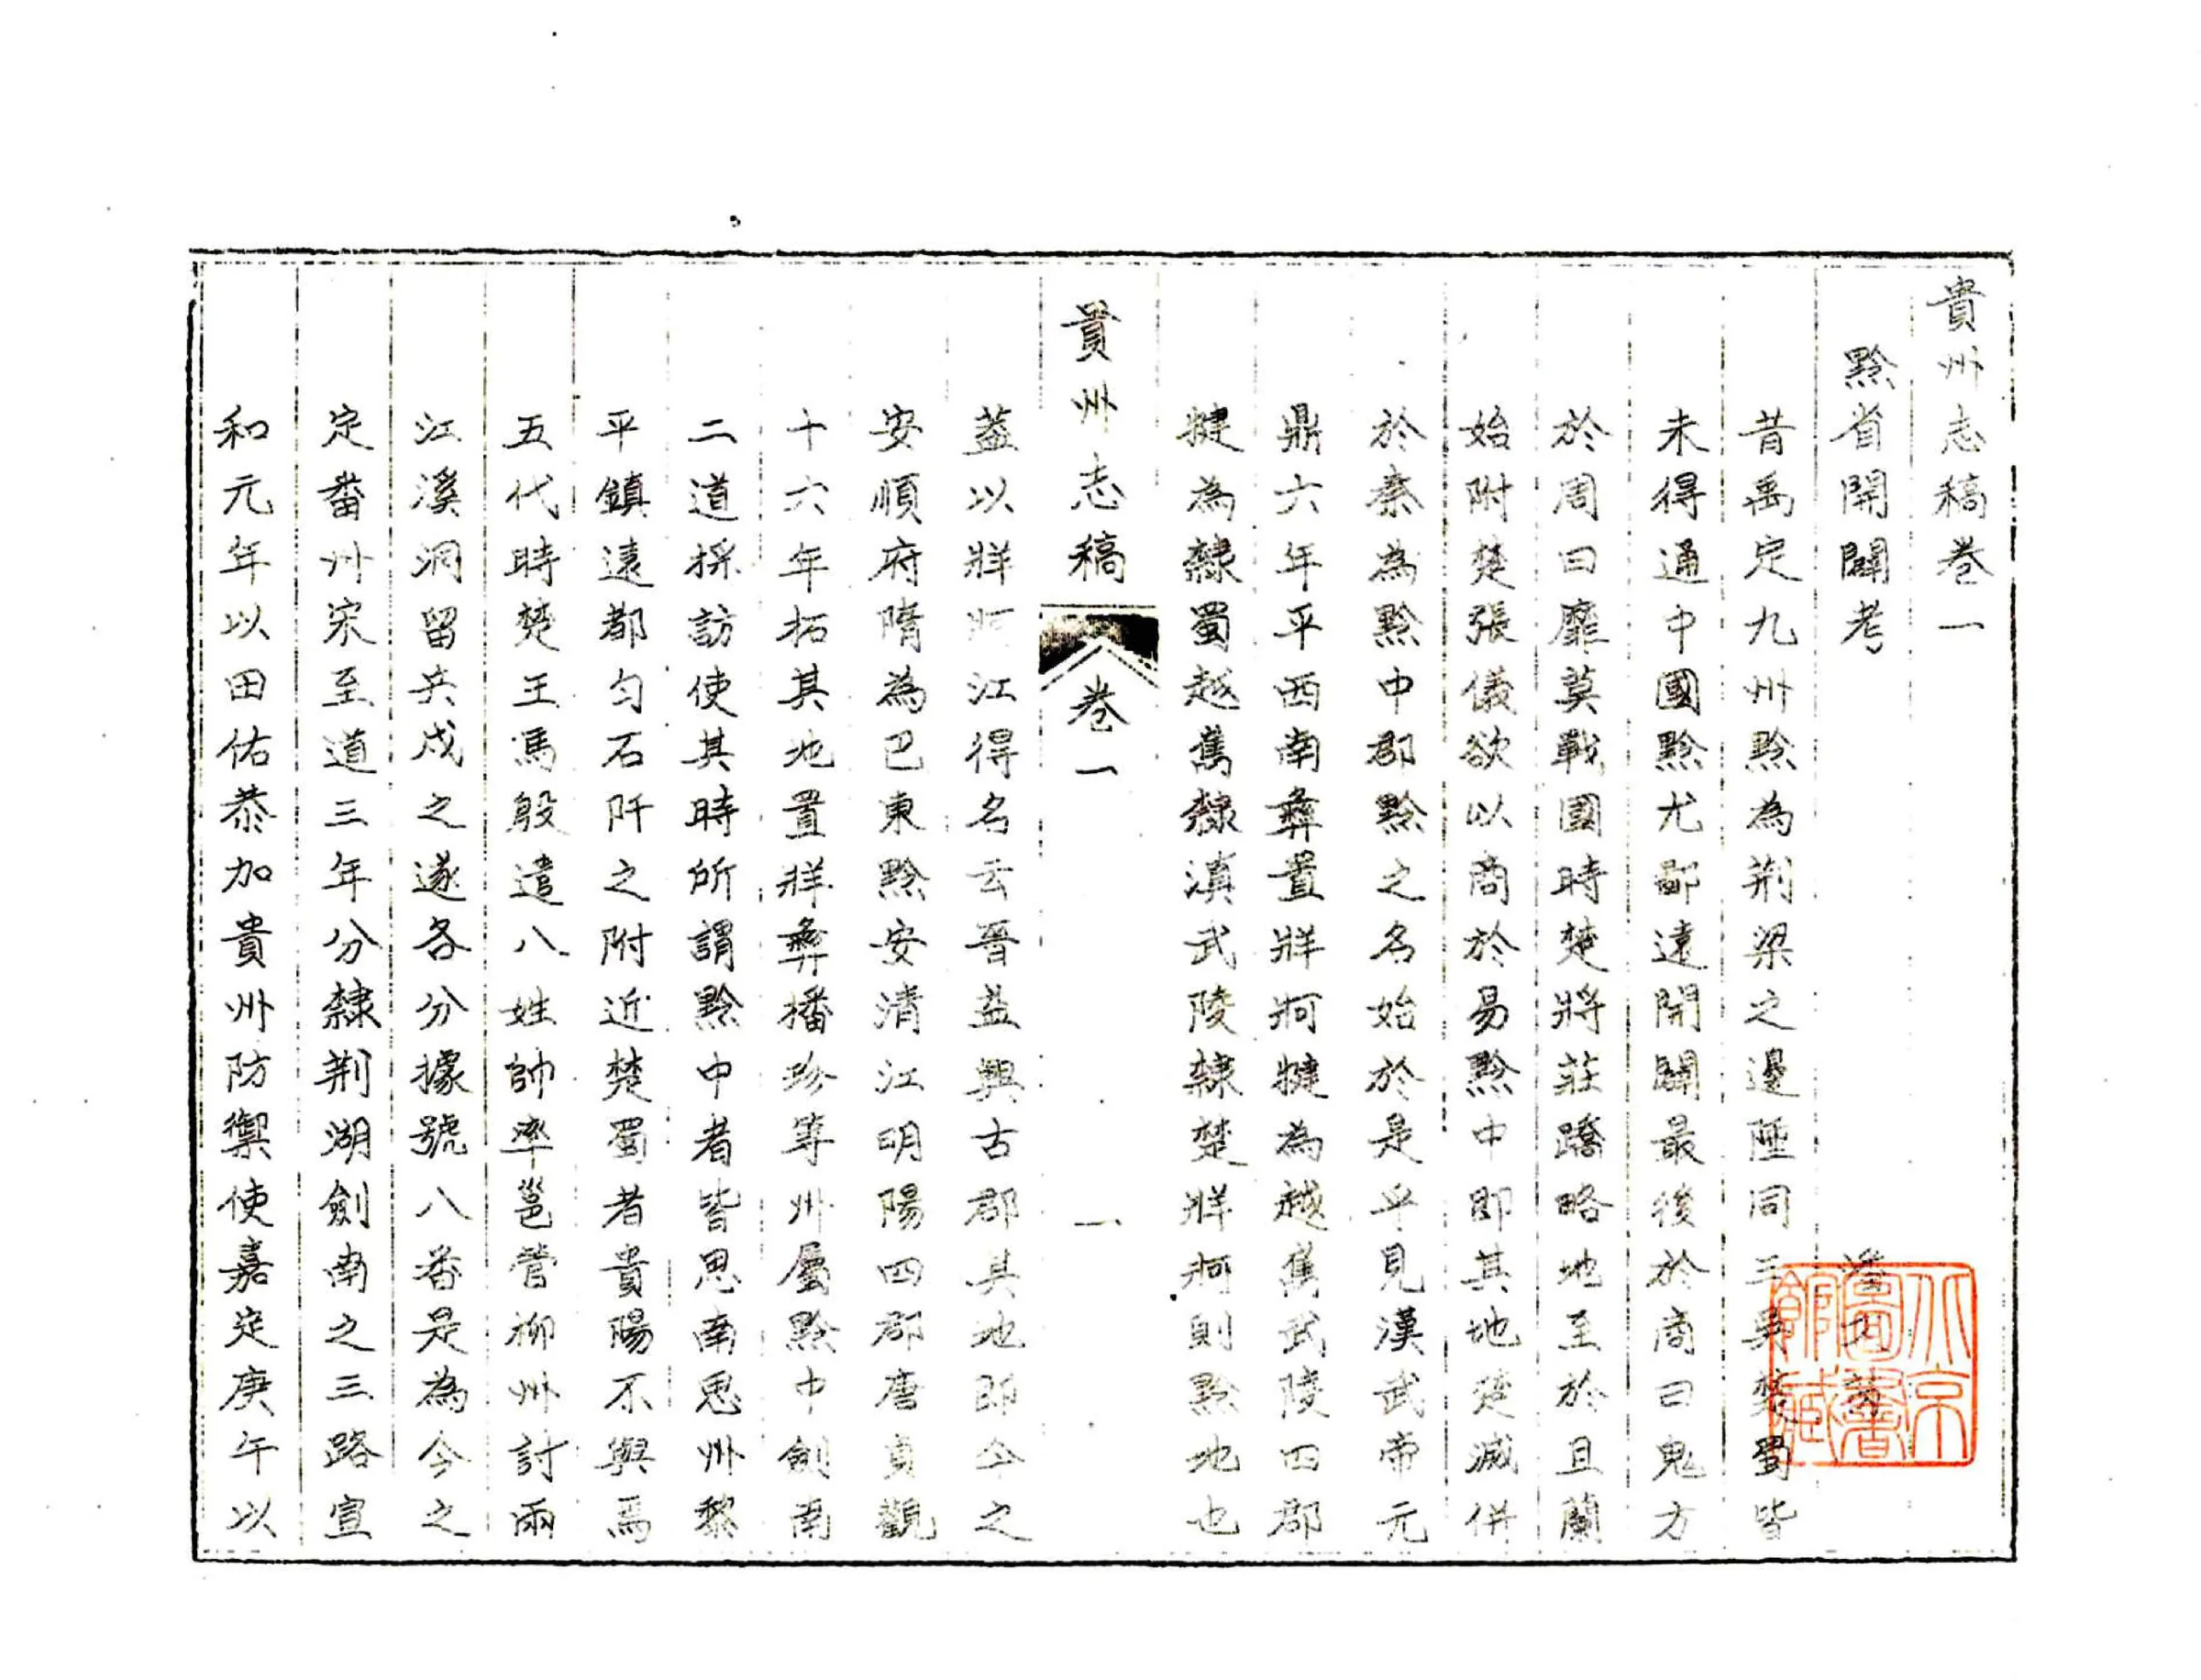 貴州志稿卷一
黔省開闢考
昔禹定九州黔為荆梁之邊陲同三吳楚蜀皆
未得通中國黔尤鄙遠開闢最後於商曰鬼方
於周曰靡莫戰國時楚將莊蹻略地至於且蘭
始附楚張儀欲以商於易黔中即其地楚滅併
於秦為黔中郡黔之名始於是乎見漢武帝元
鼎六年平西南彝置牂牁犍為越雟武陵四郡
犍為隸蜀越雟隸滇武陵隸楚牂牁則黔地也
貴州志稿
卷一
一
蓋以牂牁江得名云晋益興古郡其地即今之
安順府隋為巴東黔安清江明陽四郡唐貞觀
十六年拓其地置牂彝播珍等州屬黔中劍南
二道採訪使其時所謂黔中者皆思南思州黎
平鎮遠都勻石阡之附近楚蜀者貴陽不與焉
五代時楚王馬殷遣八姓帥率邕管柳州討兩
江溪洞留兵戍之遂各分據號八番是為今之
定番州宋至道三年分隸荆湖劍南之三路宣
和元年以田佑恭加貴州防禦使嘉定庚午以
北京圖書館藏